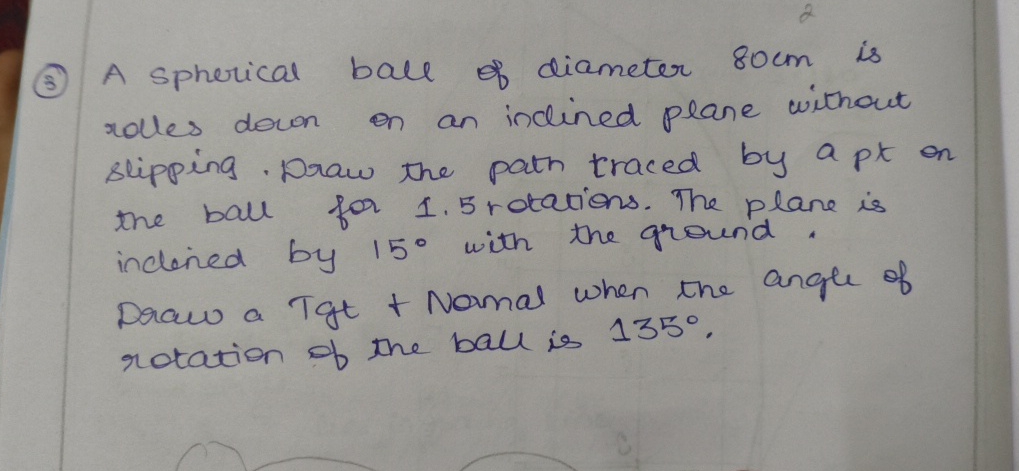 2
③ A spherical ball of diameter 80cm is
rolles down on an inclined plane without
slipping. Draw the path traced by a pt on
the ball for 1.5 rotations. The plane is
inclined by 15° with the ground.
Draw a Tgt + Normal when the angle of
rotation of the ball is 135°.